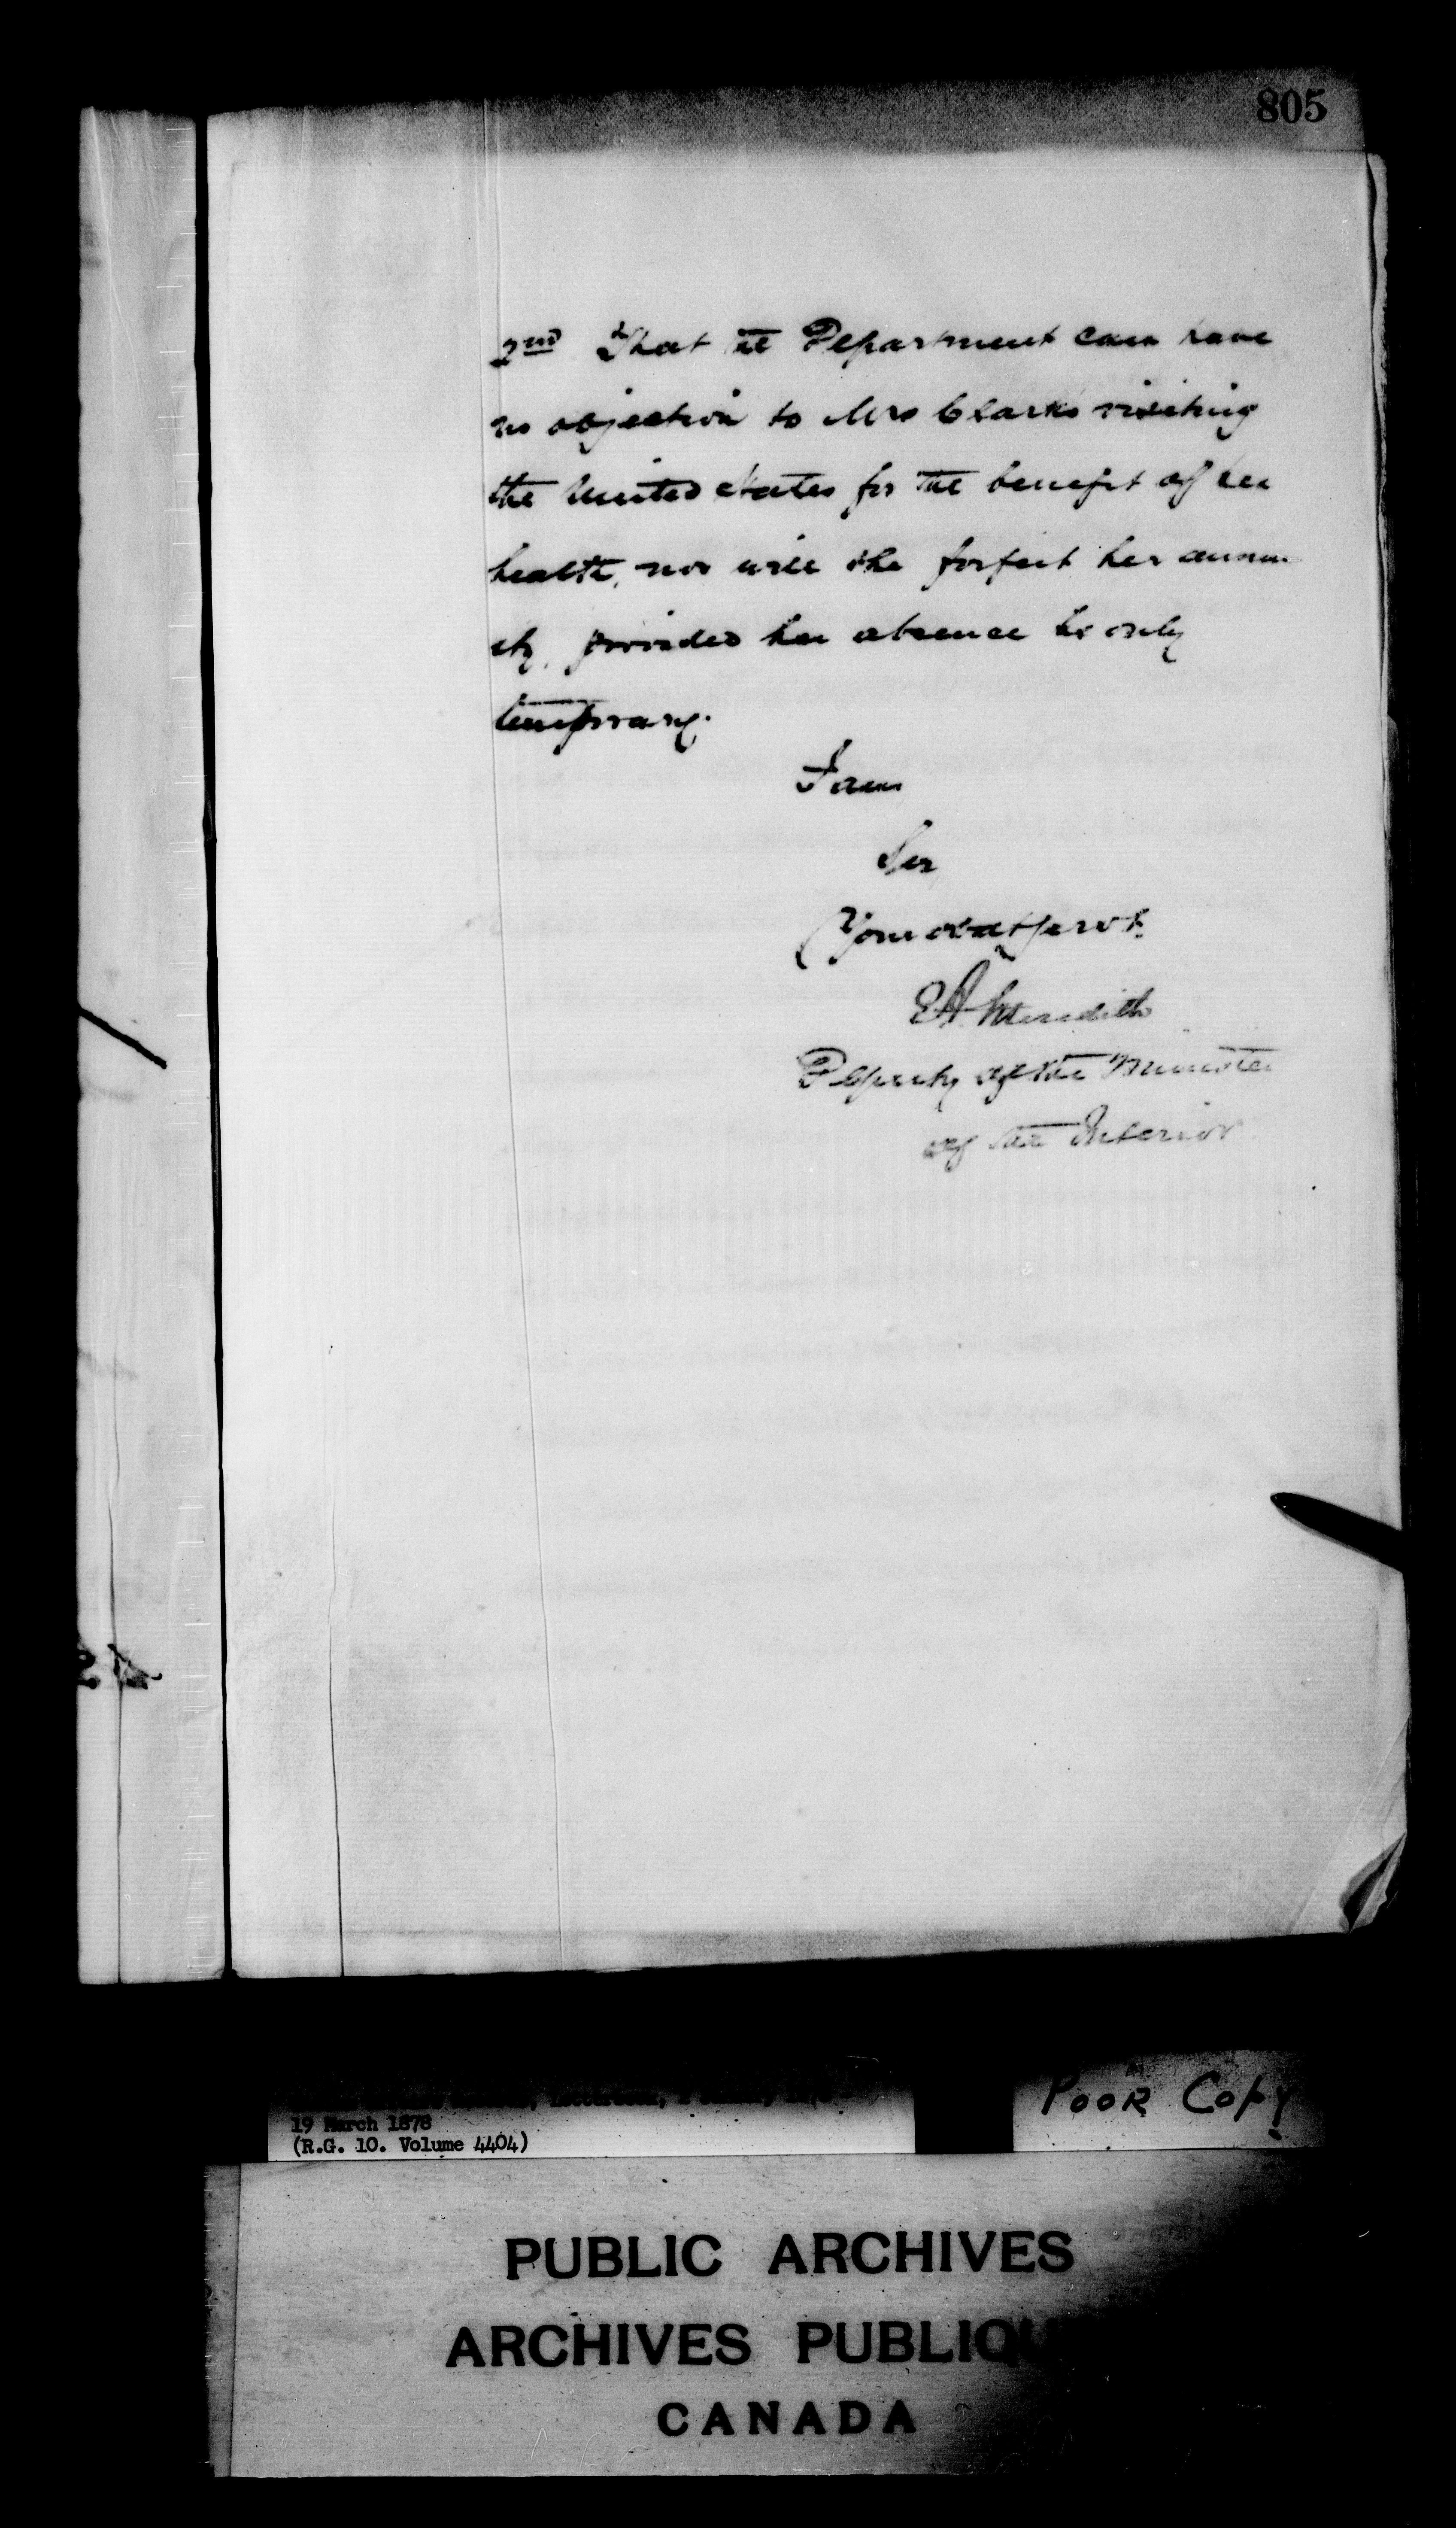 805
2nd That the Department can have
no objection to Mrs Clarks visiting
the United States for the benefit of her
health, nor will she forfeit her annu
ity, provided her absence be only
temporary.
I am
Sir
Your obdt servt
E A Meredith
Deputy of the Minister
of the Interior
19 March 1878
(R.G. 10. Volume 4404)
POOR COPY
PUBLIC ARCHIVES
ARCHIVES PUBLIQU
CANADA